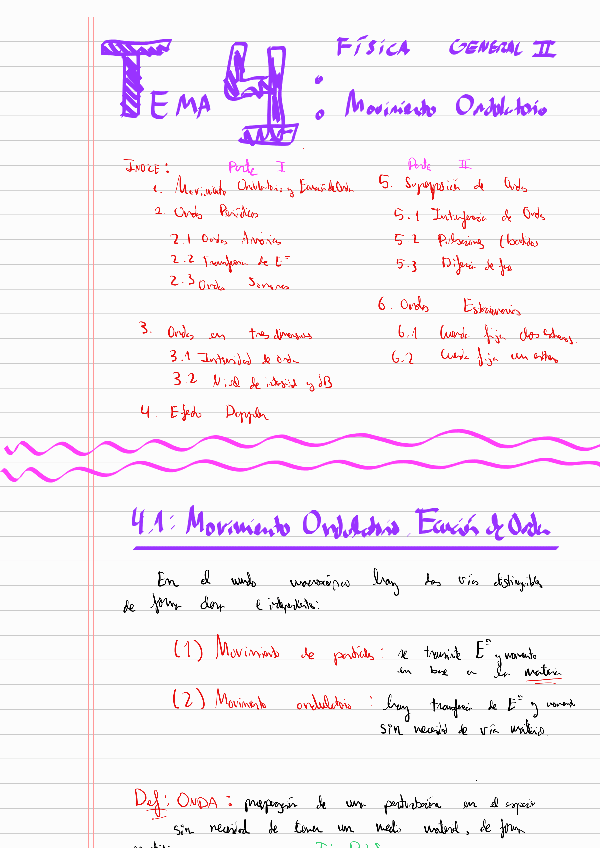 FÍSICA GENERAL II
TEMA 4: Movimiento Ondulatorio
ÍNDICE: Parte I
1. Movimiento Ondulatorio y Ecuación de Onda
2. Ondas Periódicas
2.1 Ondas Armónicas
2.2 Transferencia de Eª
2.3 Ondas Sonoras
3. Ondas en tres dimensiones
3.1 Intensidad de onda
3.2 Nivel de intensidad y dB
4. Efecto Doppler
Parte II
5. Superposición de Ondas
5.1 Interferencia de Ondas
5.2 Pulsaciones (batidos
5.3 Diferencia de fase
6. Ondas Estacionarias
6.1 Cuerda fija dos extremos.
6.2 Cuerda fija un extremo
4.1: Movimiento Ondulatorio. Ecuación de Onda
En el mundo macroscópico hay dos vías distinguibles
de forma clara e independientes:
(1) Movimiento de partículas: se transmite Eª y momento
en base a la materia
(2) Movimiento ondulatorio: hay transferencia de Eª y momento
sin necesidad de vía material.
Def: ONDA: propagación de una perturbación en el espacio
sin necesidad de tener un medio material, de forma